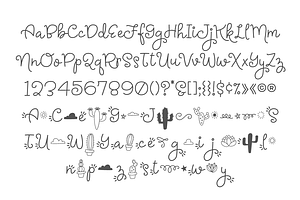 AaBbCcDdEeFfGgHhIiJjKkLlMm
NnOoPpQqRrSsTtUuVvWwXxYyZz
1234567890()?*&[];{}|!$¢%»«©®
A C e Y G J S
I U W a y c e g i j
r p z s t w y